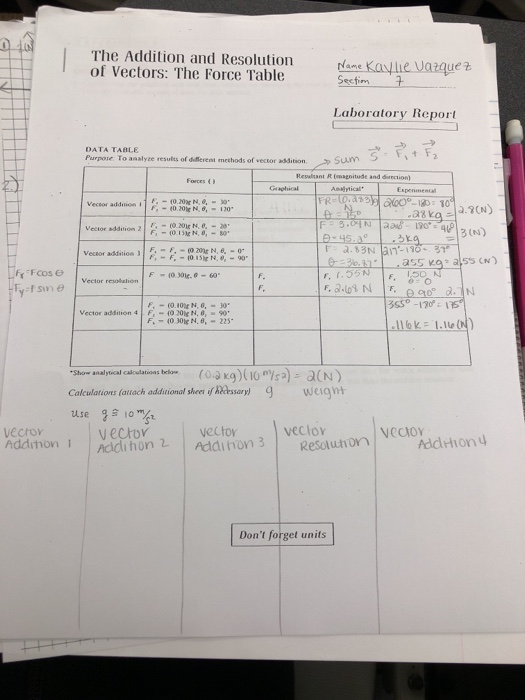 The Addition and Resolution
of Vectors: The Force Table
Name Kaylie Vazquez
Section 7
Laboratory Report
DATA TABLE
Purpose: To analyze results of different methods of vector addition.
→ sum S = F₁ + F₂
Forces ( )
Resultant R (magnitude and direction)
Graphical
Analytical*
Experimental
Vector addition 1
F₁ = (0.20)g N, θ₁ = 30°
F₂ = (0.20)g N, θ₂ = 120°
θ = 75°
260° - 180 = 80°
.28 kg =
2.8 (N)
Vector addition 2
F₁ = (0.20)g N, θ₁ = 20°
F₂ = (0.15)g N, θ₂ = 80°
F = 3.04 N
θ = 45.3°
- 180° =
.3 kg =
3 (N)
Vector addition 3
F₁ = Fₓ = (0.20)g N, θ₁ = 0°
F₂ = Fᵧ = (0.15)g N, θ₂ = 90°
2.53 N
θ = 36.87°
217° - 180 = 37°
.255 kg = 2.55 (N)
Fx = F cos θ
Fy = F sin θ
Vector resolution
F = (0.30)g, θ = 60°
Fₓ
Fᵧ
Fₓ 1.55 N
Fᵧ 2.68 N
Fₓ 1.50 N
θ = 0
Fᵧ θ 90° 2.7 N
Vector addition 4
F₁ = (0.10)g N, θ₁ = 30°
F₂ = (0.20)g N, θ₂ = 90°
F₃ = (0.30)g N, θ₃ = 225°
355° - 180° = 175°
.116 k = 1.16 (N)
*Show analytical calculations below.
(0.2 kg)(10 m/s²) = 2(N)
Calculations (attach additional sheet if necessary)
g
weight
use g ≅ 10 m/s²
vector
Addition 1
vector
Addition 2
vector
Addition 3
vector
Resolution
vector
Addition 4
Don't forget units